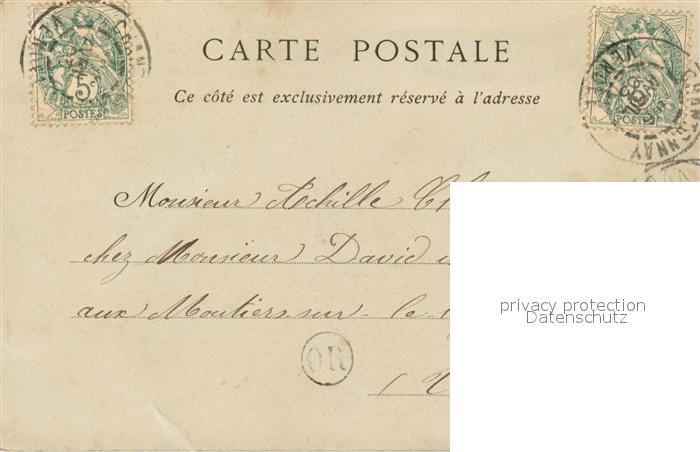 CARTE POSTALE
Ce côté est exclusivement réservé à l'adresse
5c
POSTES
POSTES
CHANTONNAY
Monsieur Achille
chez Monsieur David
aux Moutiers-sur-le
OR
privacy protection
Datenschutz